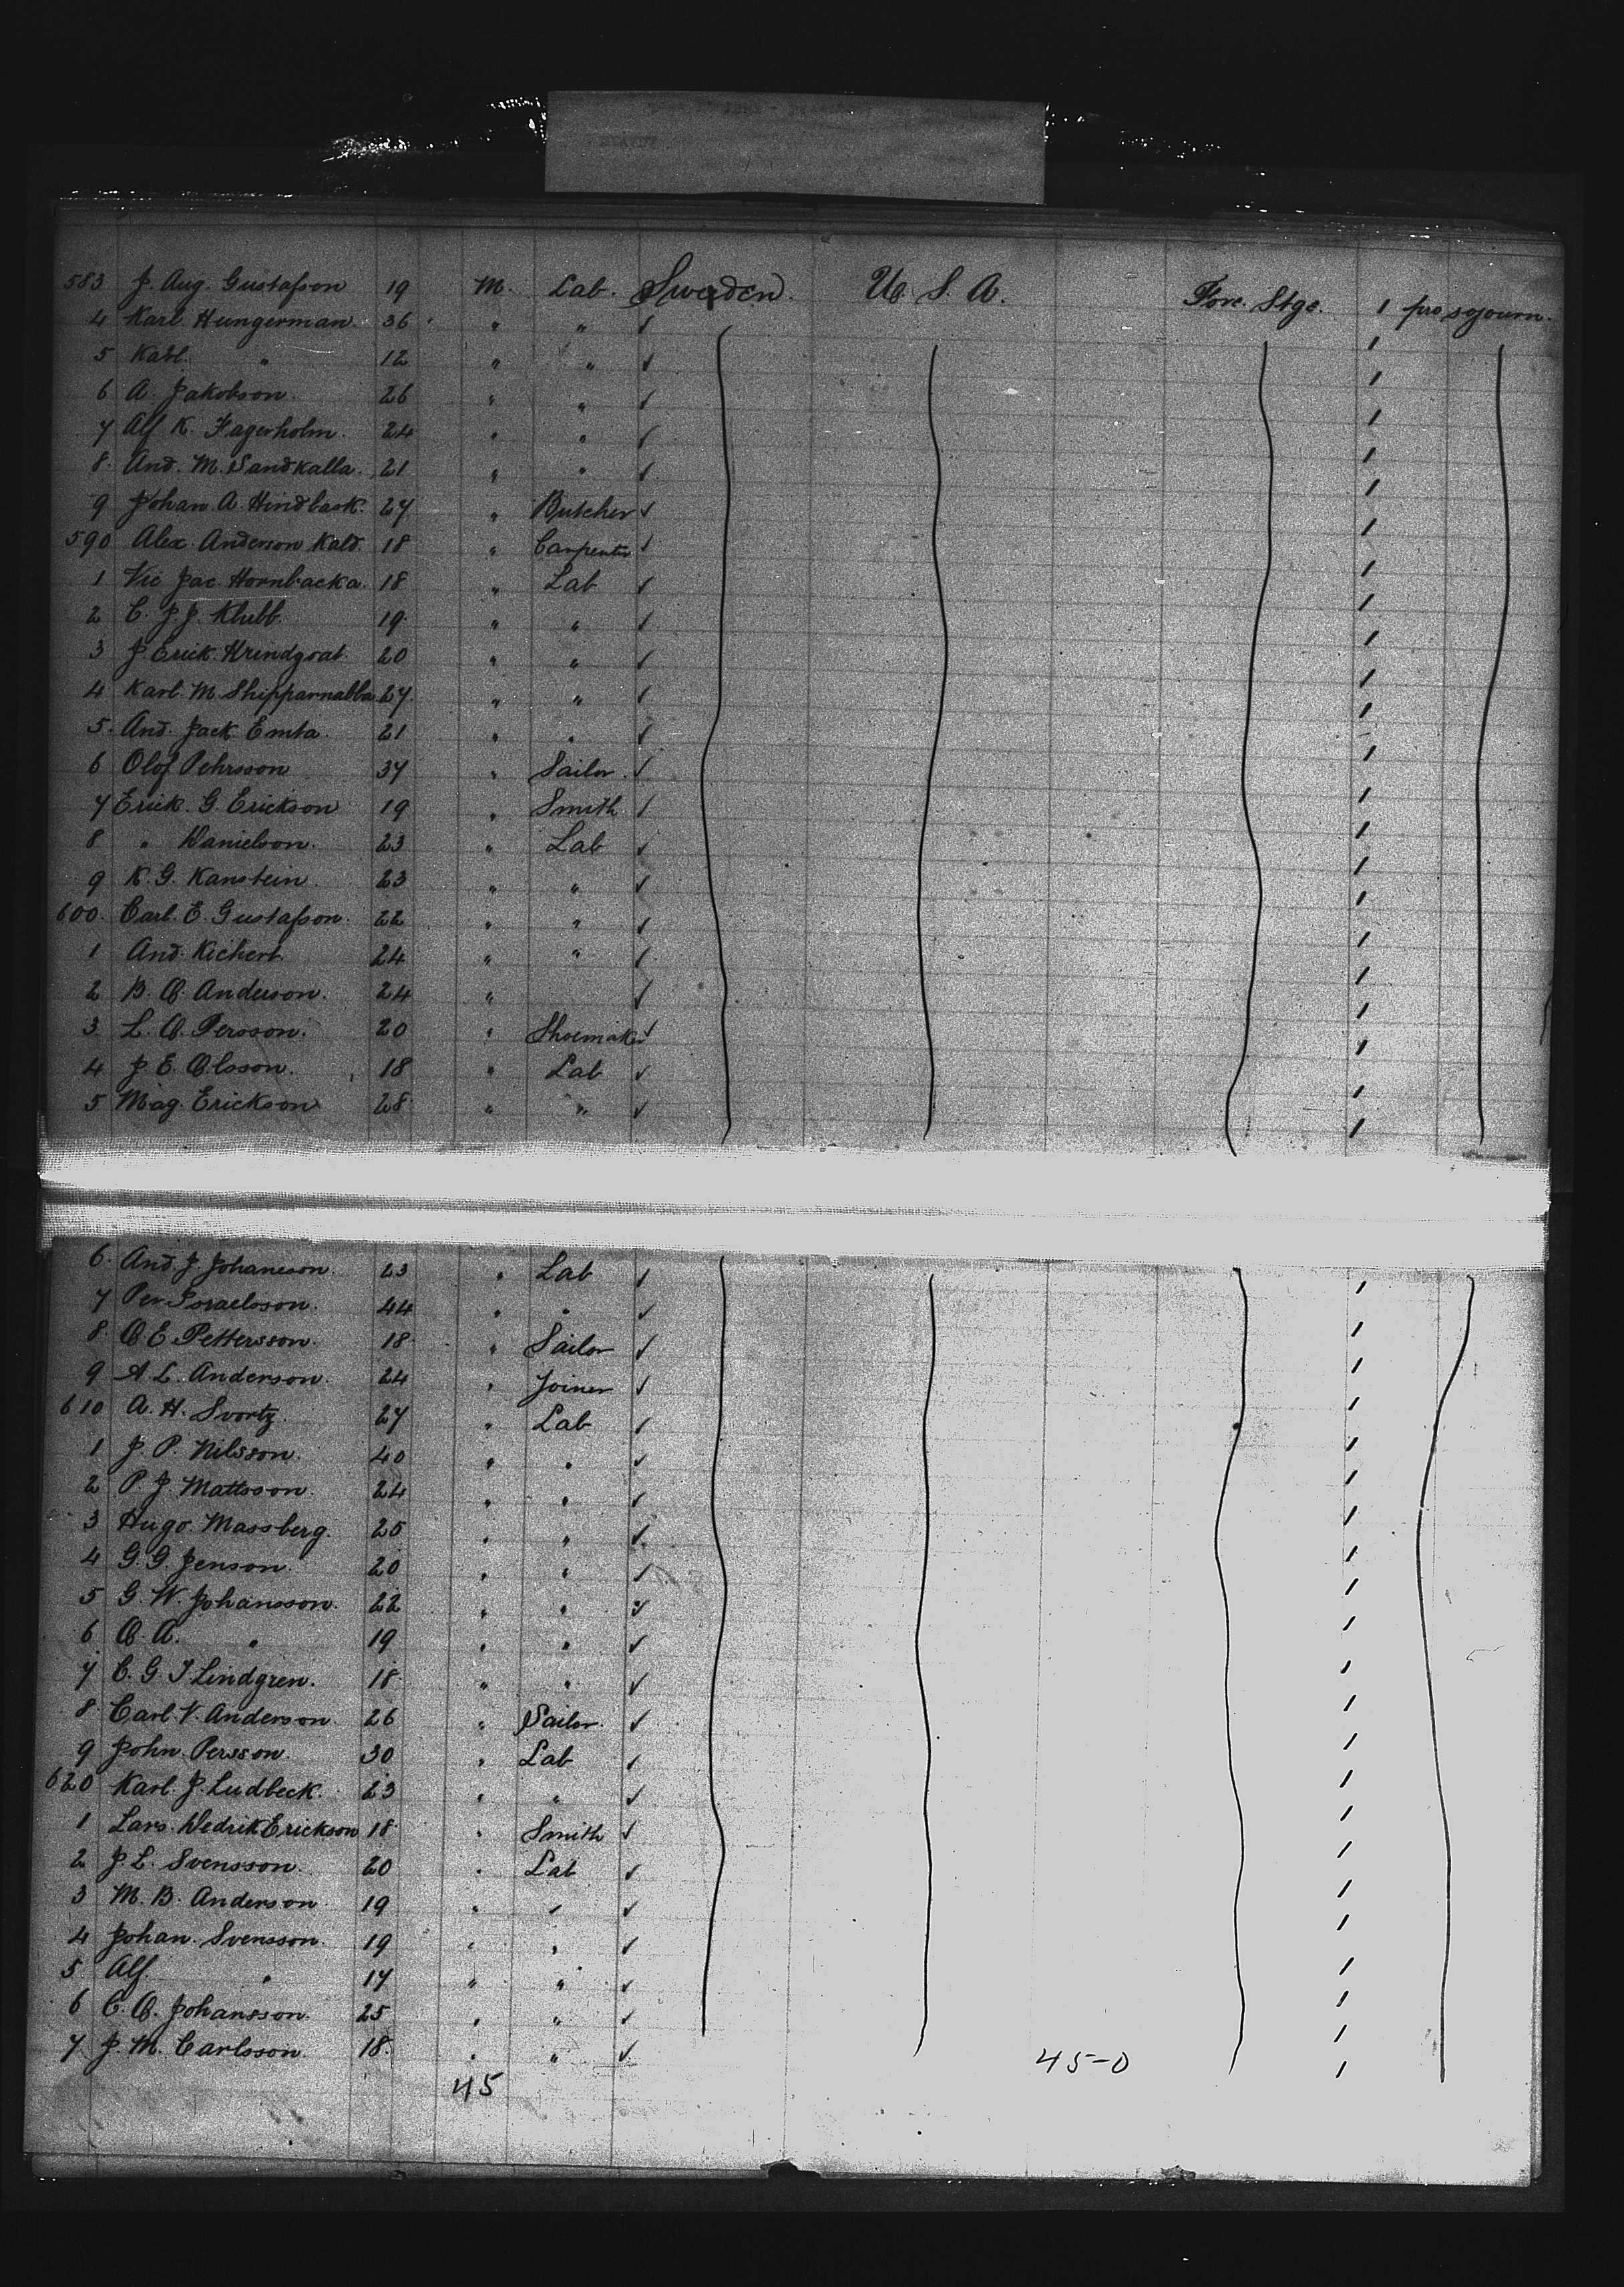 583 J. Aug. Gustafson 19 M. Lab. Sweden. U. S. A. Fore. Stge. 1 pro sojourn.
4 Karl Hungerman 36 " " ✓ 1
5 Karl " 12 " " ✓ 1
6 A. Jakobson 26 " " ✓ 1
7 Alf K. Fagerholm. 24 " " ✓ 1
8. And. M. Sandkalla. 21 " " ✓ 1
9 Johan A. Hindback. 27 " Butcher ✓ 1
590 Alex. Anderson Kald 18 " Carpenter ✓ 1
1 Vic Jac. Hornbacka. 18 " Lab ✓ 1
2 C. J. J. Klubb. 19. " " ✓ 1
3 J. Erick 20 " " ✓ 1
4 Karl. M. Shipparnabba 27. " " ✓ 1
5. And. Jack Emta. 21 " " ✓ 1
6 Olof Pehrsson 37 " Sailor. ✓ 1
7 Erick. G. Erickson 19 " Smith ✓ 1
8 " Danielson. 23 " Lab ✓ 1
9 K. G. Kanstein. 23 " " ✓ 1
600. Carl. E. Gustafson. 22 " " ✓ 1
1 And. Kichert 24 " " ✓ 1
2 B. O. Anderson. 24 " ✓ 1
3 L. O. Persson. 20 " Shoemaker ✓ 1
4 J. E. Olsson. 18 " Lab ✓ 1
5 Mag. Erickson 28 " " ✓ 1
6. And. J. Johansson. 23 " Lab ✓ 1
7 Per Israelsson. 44 " " ✓ 1
8 O. E. Pettersson. 18 " Sailor ✓ 1
9 A. L. Anderson. 24 " Joiner ✓ 1
610 A. H. Svortz. 27 " Lab ✓ 1
1 J. P. Nilsson. 40 " " ✓ 1
2 P. J. Mattsson. 24 " " ✓ 1
3 Hugo Massberg. 25 " " ✓ 1
4 G. G. Jenson. 20 " " ✓ 1
5 G. W. Johansson. 22 " " ✓ 1
6 O. A. " 19 " " ✓ 1
7 C. G. T. Lindgren. 18. " " ✓ 1
8 Carl. V. Anderson. 26 " Sailor. ✓ 1
9 John. Persson. 30 " Lab ✓ 1
620 Karl. J. Ludbeck. 23 " " ✓ 1
1 Lars. Dedrik Erickson 18 " Smith ✓ 1
2 J. L. Svensson. 20 " Lab ✓ 1
3 M. B. Anderson 19 " " ✓ 1
4 Johan. Svensson. 19 " " ✓ 1
5 Alf. " 17 " " ✓ 1
6 C. O. Johansson. 25 " " ✓ 1
7. J. M. Carlsson. 18. " " ✓ 1
45 45-0